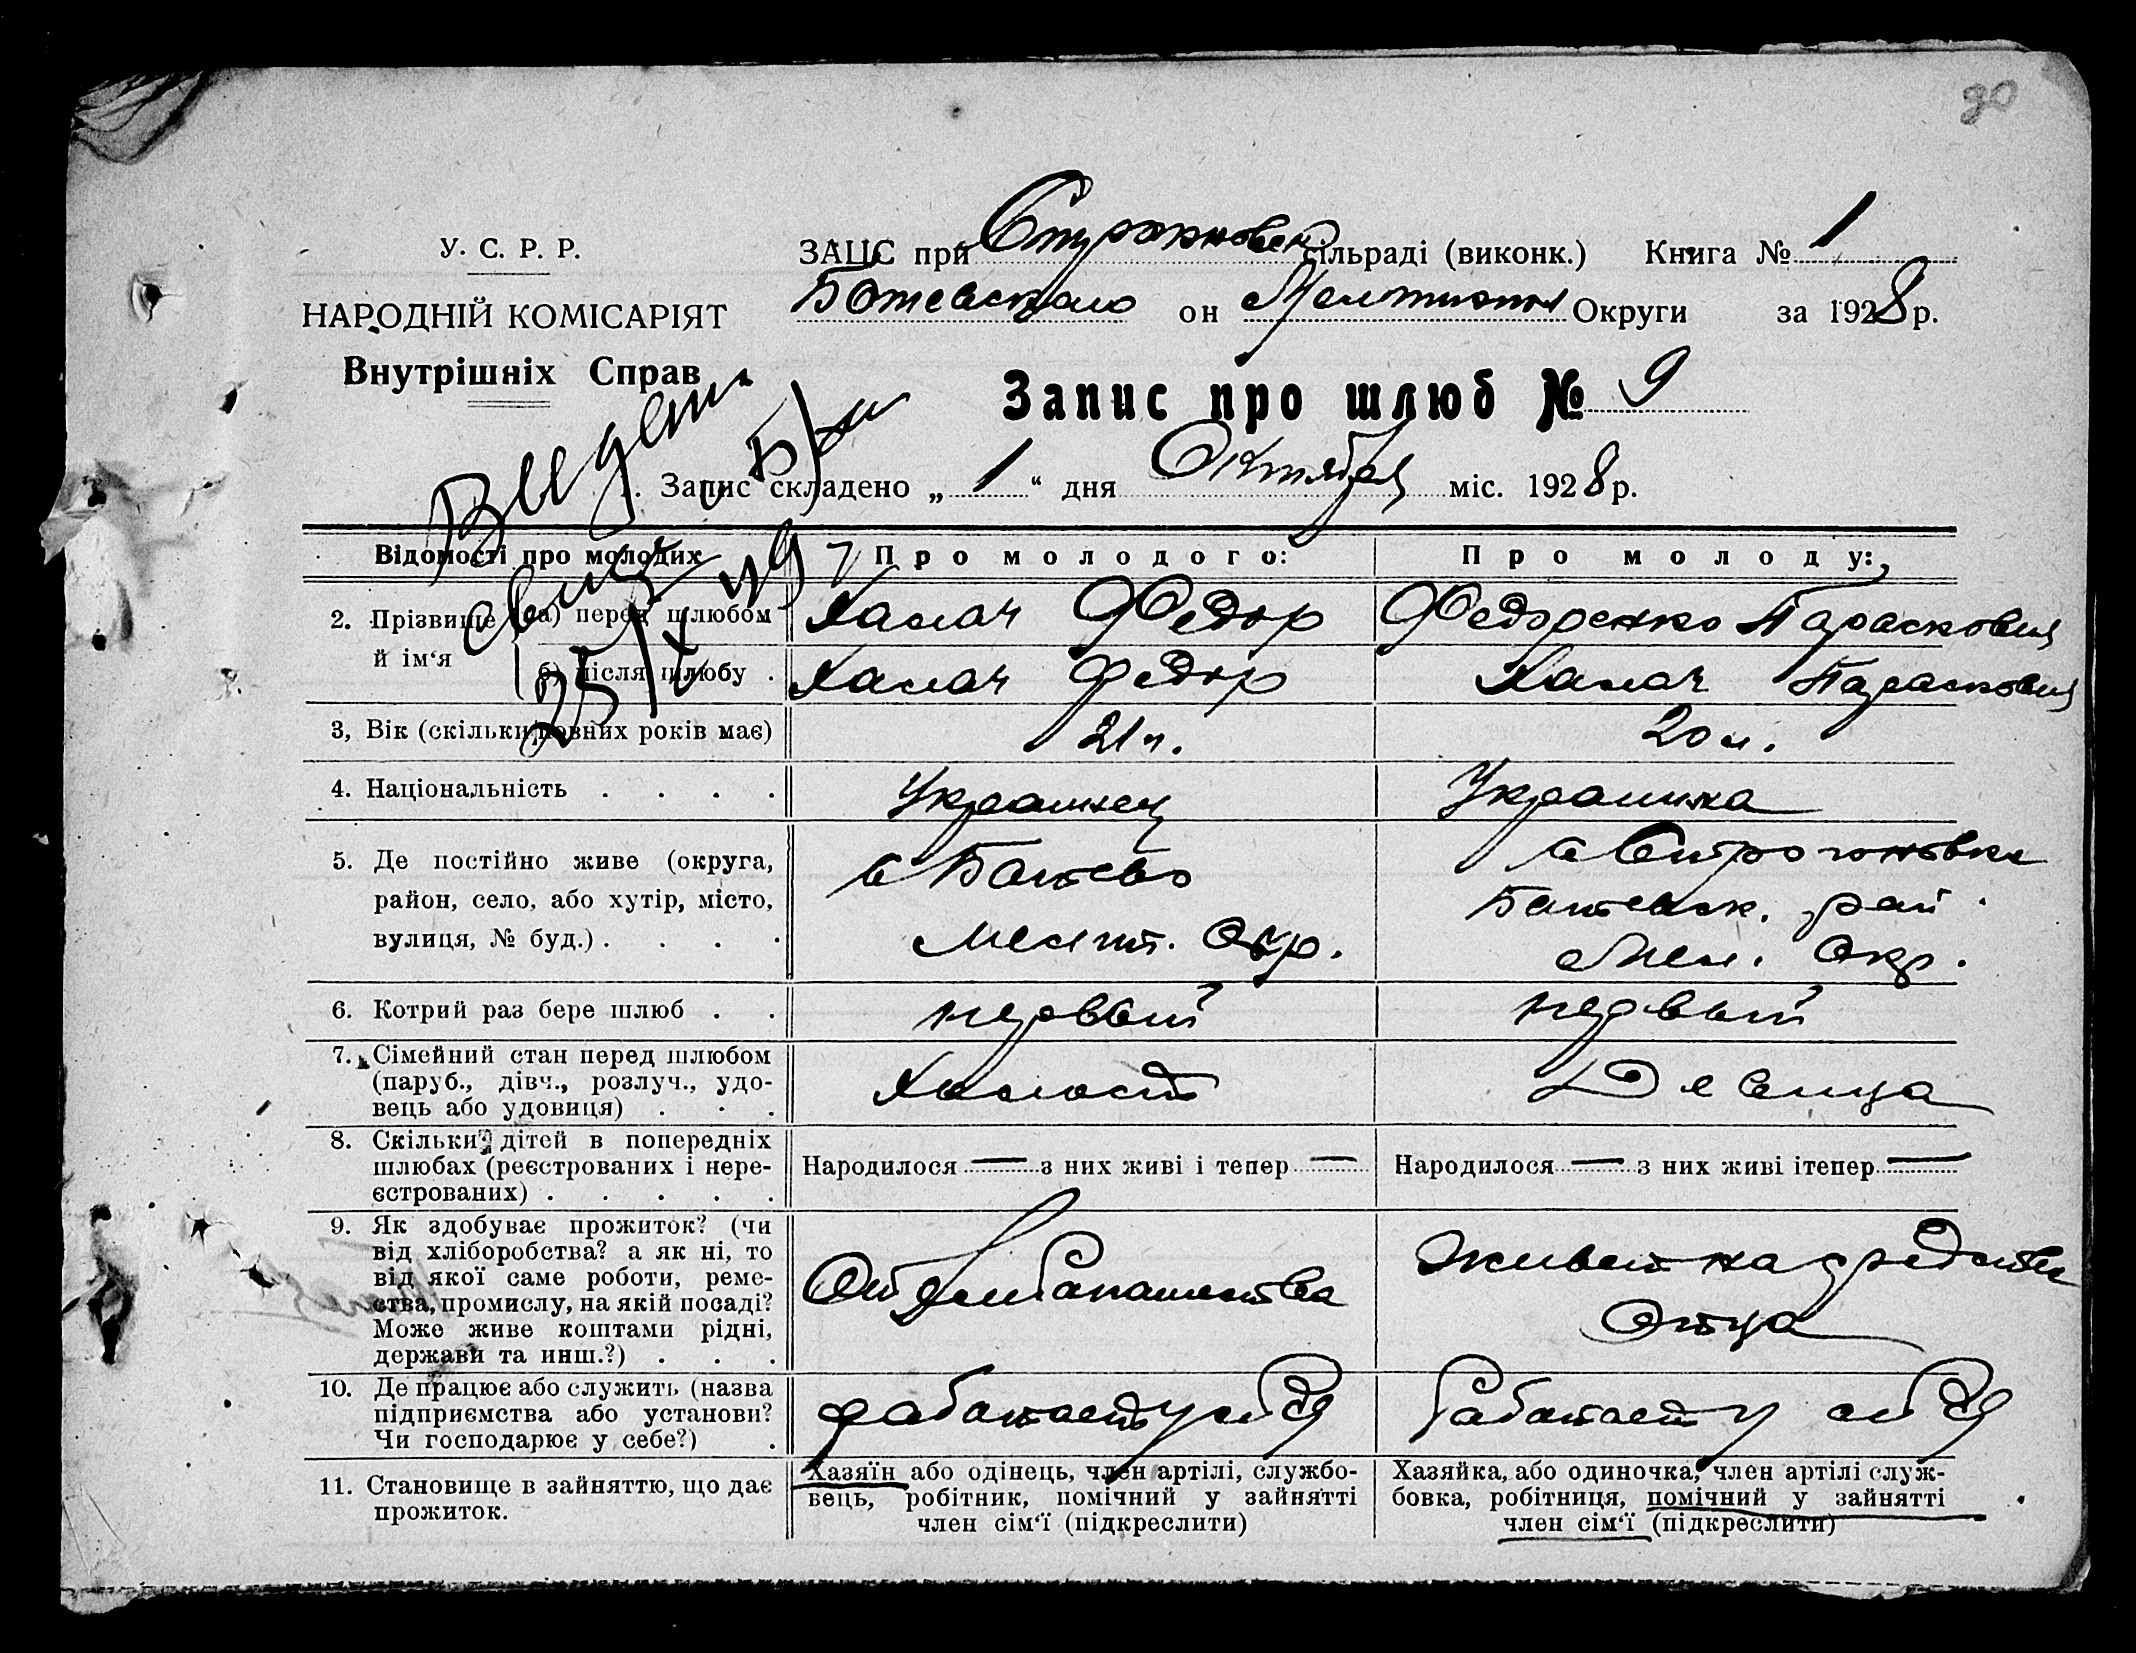 30
У. С. Р. Р.
НАРОДНІЙ КОМІСАРІЯТ
Внутрішніх Справ
ЗАЦС при сільраді (виконк.) Книга № 1
Ботевского он Мелитопол Округи за 1928 р.
Запис про шлюб № 9
1. Запис складено „ 1 “ дня Октября міс. 1928 р.
Відомості про молодих
Про молодого:
Про молоду:
2. Прізвище й ім‘я
а) перед шлюбом
Халач Федор
Федоренко Парасковия
б) після шлюбу .
Халач Федор
Халач Парасковия
3, Вік (скільки повних років має)
21 л.
20 л.
4. Національність . . . .
Украинец
Украинка
5. Де постійно живе (округа,
район, село, або хутір, місто,
вулиця, № буд.) . . . .
с Ботево
Мелит. Окр.
с Строгоновке
Ботевск. рай.
Мел. Окр.
6. Котрий раз бере шлюб . .
первый
первый
7. Сімейний стан перед шлюбом
(паруб., дівч., розлуч., удо-
вець або удовиця) . . .
Холост
Девица
8. Скільки дітей в попередніх
шлюбах (реєстрованих і нере-
єстрованих) . . . . .
Народилося — з них живі і тепер —
Народилося — з них живі ітепер —
9. Як здобуває прожиток? (чи
від хліборобства? а як ні, то
від якої саме роботи, реме-
ства, промислу, на якій посаді?
Може живе коштами рідні,
держави та инш.?) . . .
От
Живет на средства
Отца
10. Де працює або служить (назва
підприємства або установи?
Чи господарює у себе?) .
работает у себя
Работает у себя
11. Становище в зайняттю, що дає
прожиток.
Хазяїн або одінець, член артілі, службо-
вець, робітник, помічний у зайнятті
член сім‘ї (підкреслити)
Хазяйка, або одиночка, член артілі служ-
бовка, робітниця, помічний у зайнятті
член сім‘ї (підкреслити)